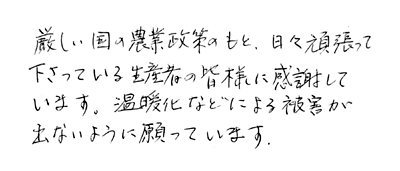 厳しい国の農業政策のもと、日々頑張って
下さっている生産者の皆様に感謝して
います。温暖化などによる被害が
出ないように願っています.